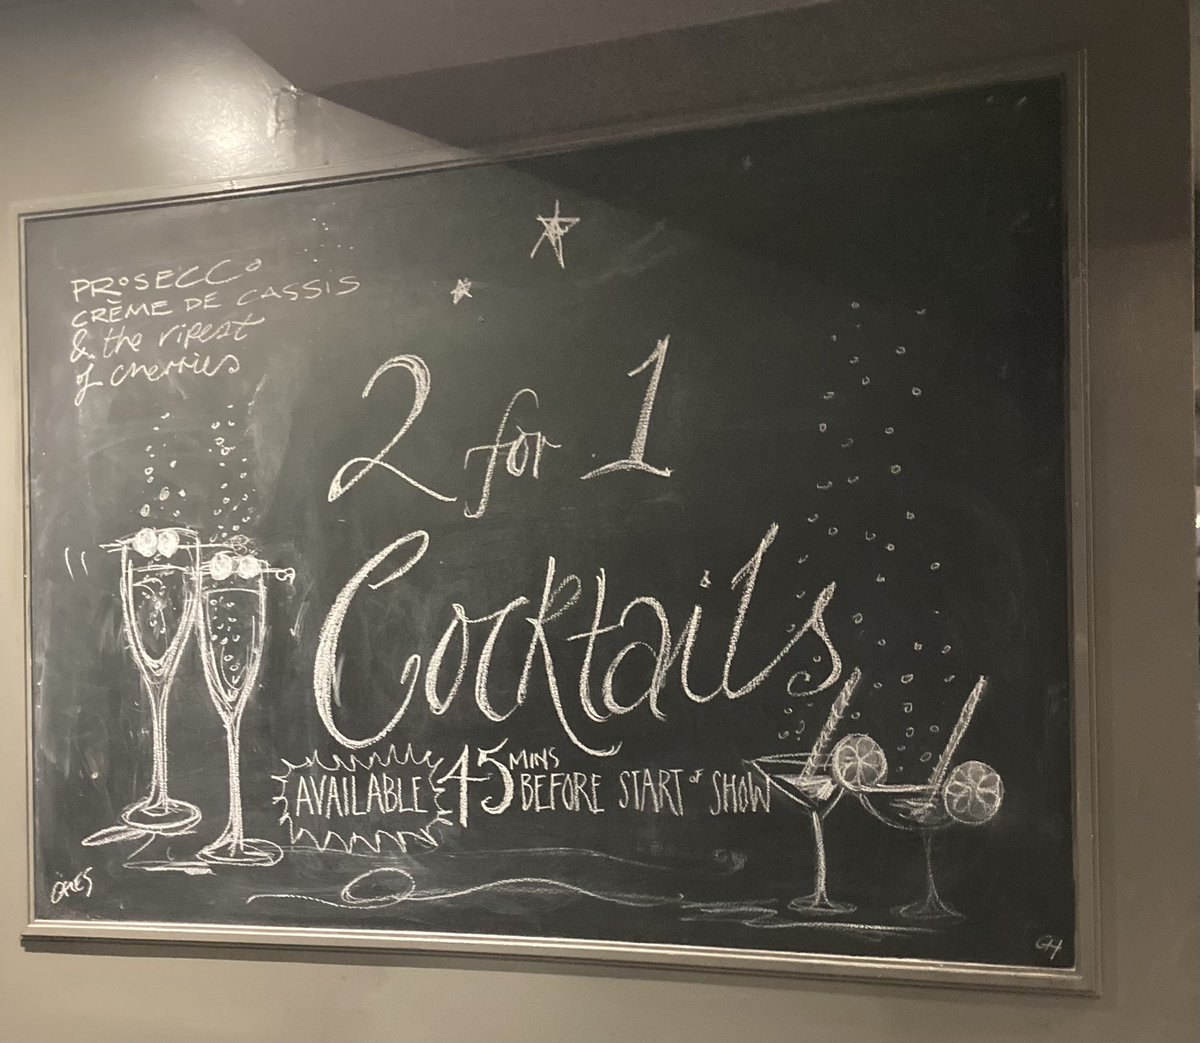 PROSECCO
CRÈME DE CASSIS
& the ripest
of cherries
2 for 1
Cocktails
AVAILABLE 45 MINS BEFORE START OF SHOW
GH